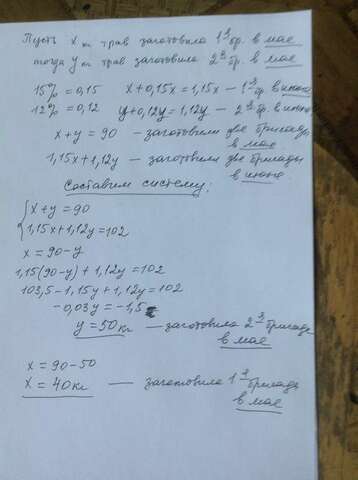 Пусть x кг трав заготовила 1ᵃ бр. в мае
тогда y кг трав заготовила 2ᵃ бр. в мае
15% = 0,15 x + 0,15x = 1,15x – 1ᵃ бр. в июне
12% = 0,12 y + 0,12y = 1,12y – 2ᵃ бр. в июне
x + y = 90 – заготовили две бригады
в мае
1,15x + 1,12y – заготовили две бригады
в июне.
Составим систему:
{ x + y = 90
1,15x + 1,12y = 102
x = 90 – y
1,15(90 – y) + 1,12y = 102
103,5 – 1,15y + 1,12y = 102
– 0,03y = –1,5
y = 50 кг – заготовила 2ᵃ бригада
в мае
x = 90 – 50
x = 40 кг – заготовила 1ᵃ бригада
в мае